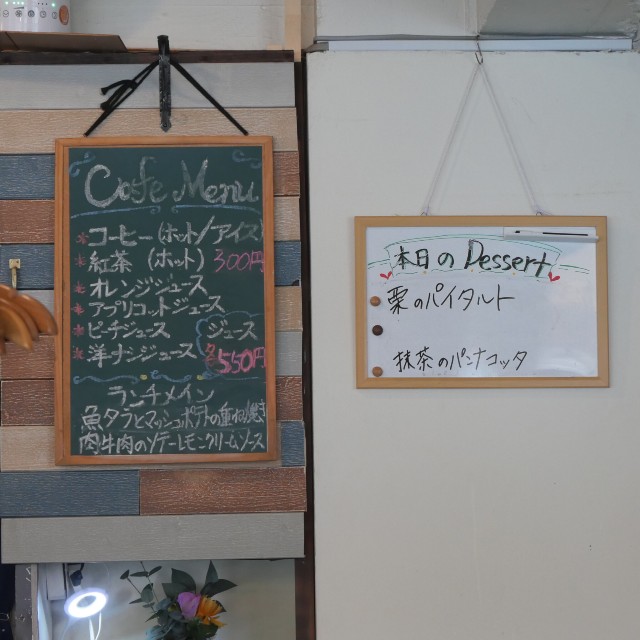 Cafe Menu
* コーヒー (ホット/アイス)
* 紅茶 (ホット) 300円
* オレンジジュース
* アプリコットジュース
* ピーチジュース ジュース
* 洋ナシジュース 各550円
ランチメイン
魚 タラとマッシュポテトの重ね焼き
肉 牛肉のソテーレモンクリームソース
本日のDessert
栗のパイタルト
抹茶のパンナコッタ